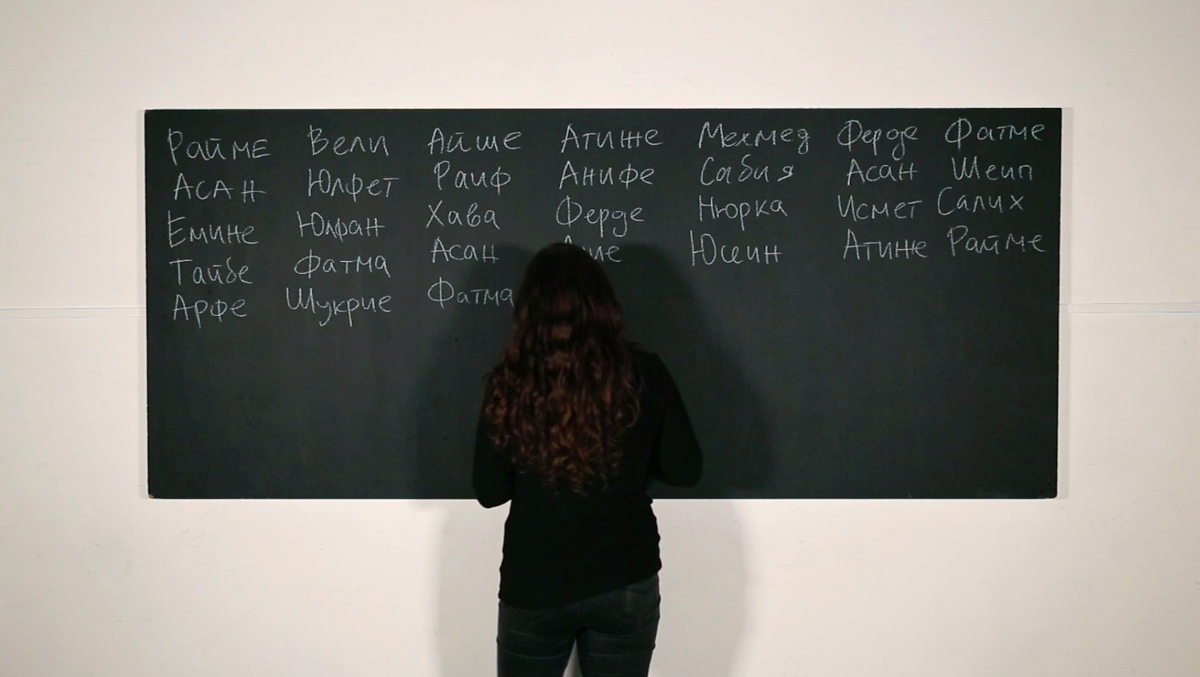 Райме Вели Айше Атиже Мехмед Ферде Фатме
Асан Юлфет Раиф Анифе Сабия Асан Шеип
Емине Юлфан Хава Ферде Нюрка Исмет Салих
Тайбе Фатма Асан Юсеин Атиже Райме
Арфе Шукрие Фатма